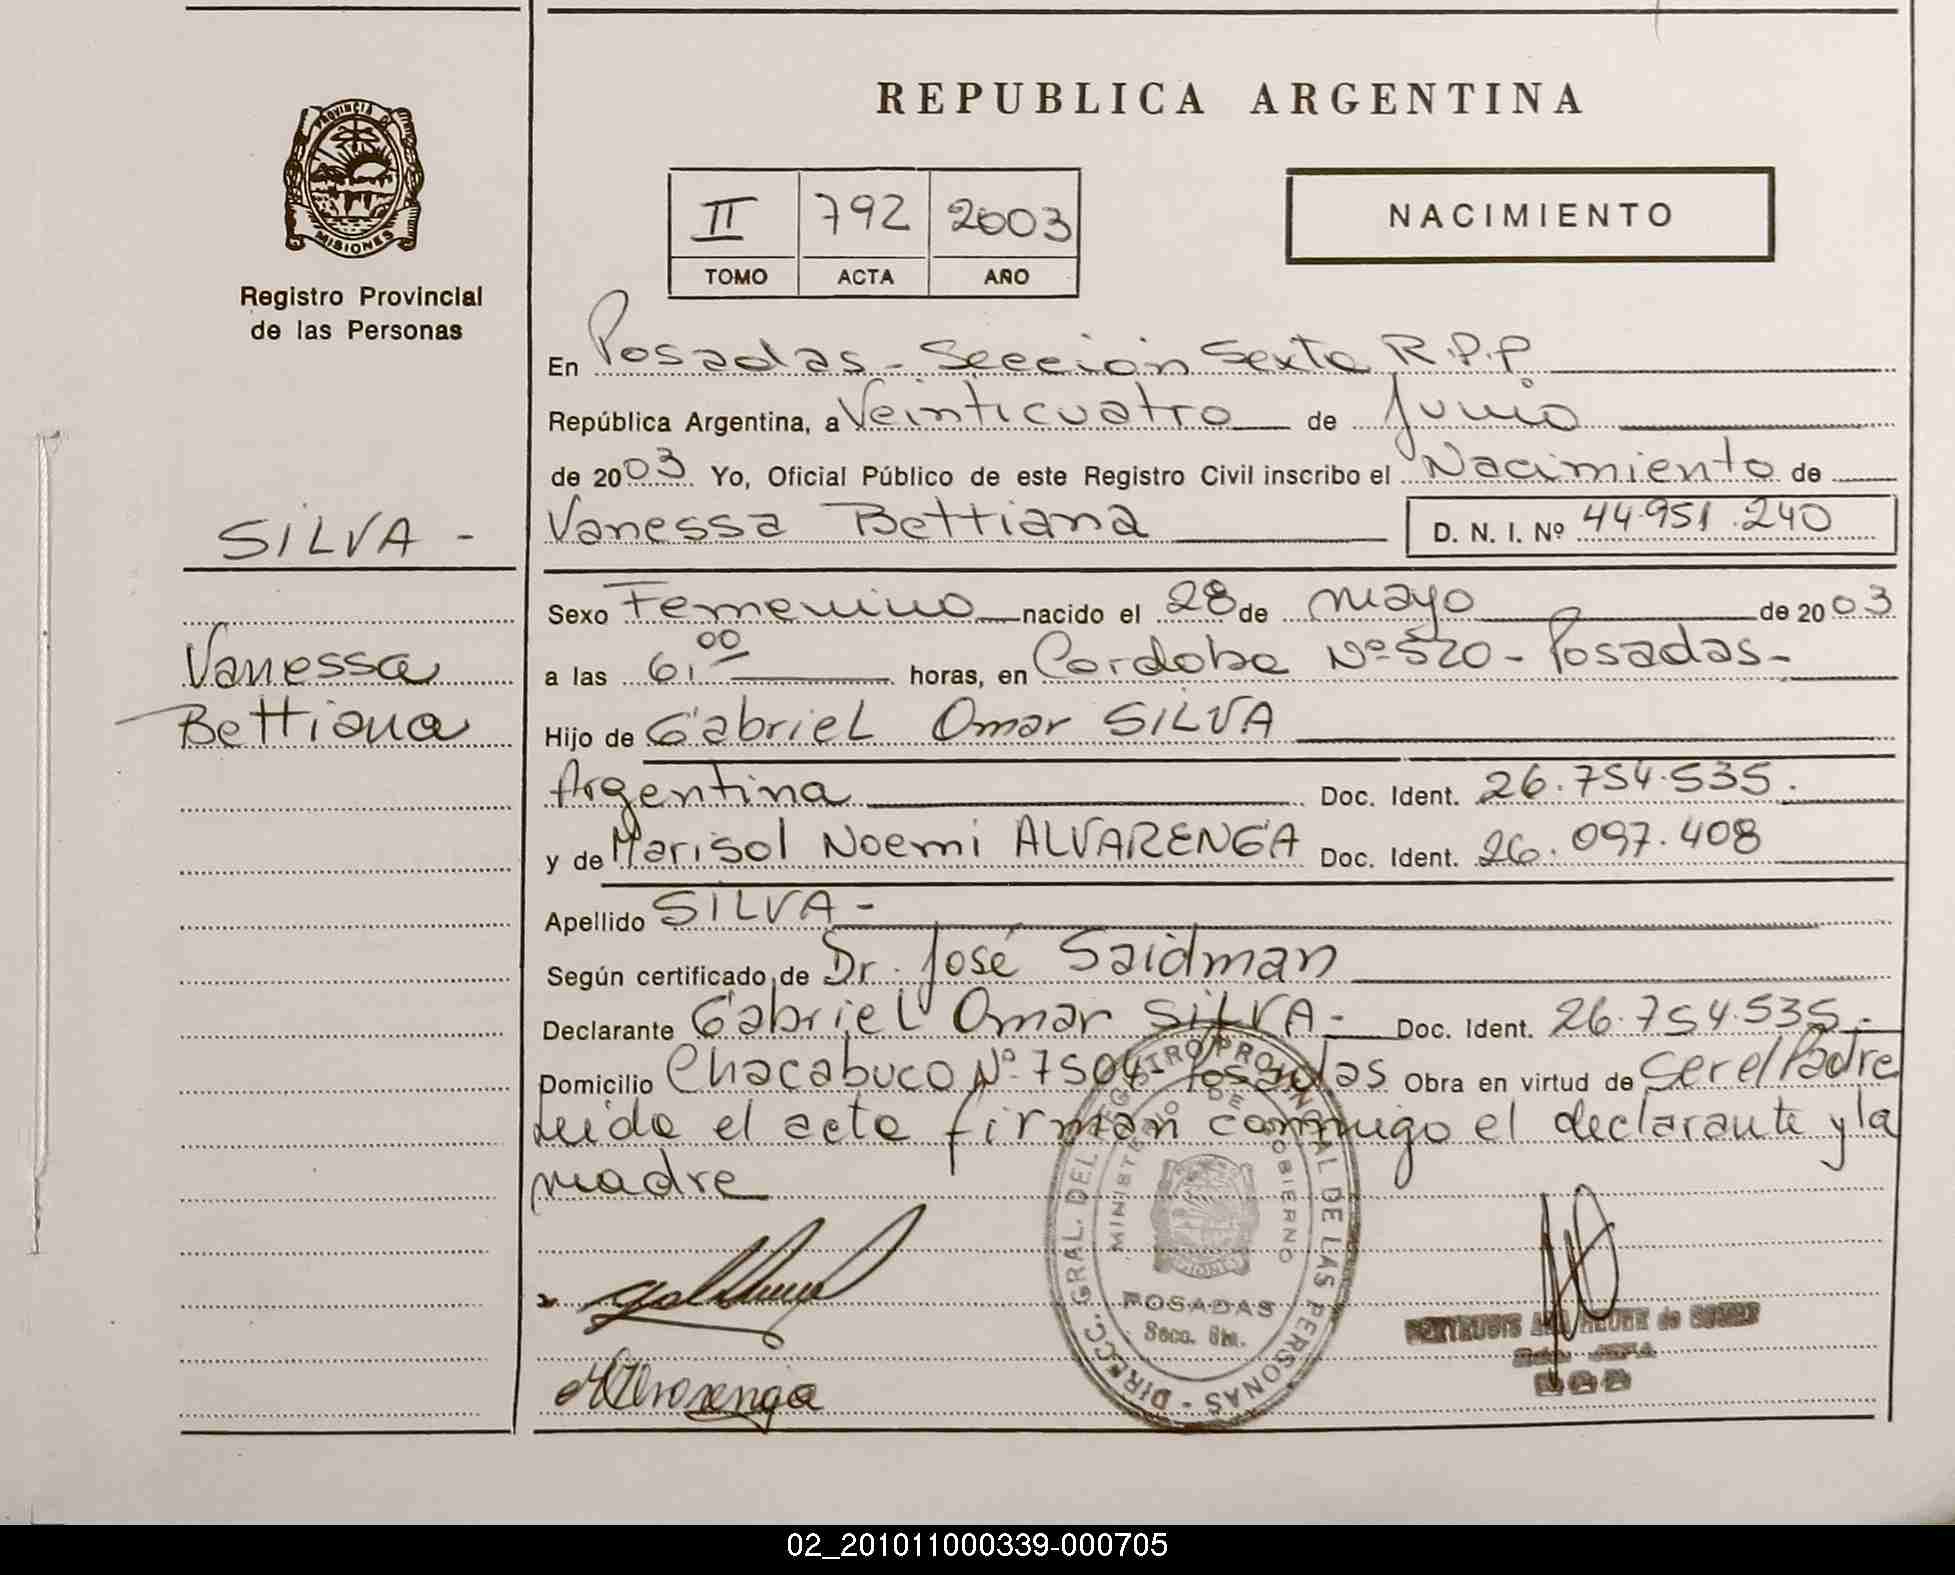 REPUBLICA ARGENTINA
PROVINCIA DE
MISIONES
Registro Provincial
de las Personas
II 792 2003
TOMO ACTA AÑO
NACIMIENTO
En Posadas - Sección Sexta R.P.P.
República Argentina, a Veinticuatro de Junio
de 2003 Yo, Oficial Público de este Registro Civil inscribo el Nacimiento de
SILVA -
Vanessa Bettiana D. N. I. Nº 44.951.240
Sexo Femenino nacido el 28 de mayo de 2003
Vanessa
a las 6,00 horas, en Cordoba Nº 520 - Posadas -
Bettiana
Hijo de Gabriel Omar SILVA
Argentina Doc. Ident. 26.754.535.
y de Marisol Noemi ALVARENGA Doc. Ident. 26.097.408
Apellido SILVA -
Según certificado de Dr. José Saidman
Declarante Gabriel Omar SILVA - Doc. Ident. 26.754.535.-
Domicilio Chacabuco Nº 7504 - Posadas Obra en virtud de ser el Padre
Leida el acta firman conmigo el declarante y la
madre
DIRECC. GRAL. DEL REGISTRO PROVINCIAL DE LAS PERSONAS -
MINISTERIO DE GOBIERNO
MISIONES
POSADAS
Secc. 6ta.
de
MAlvarenga
02_201011000339-000705